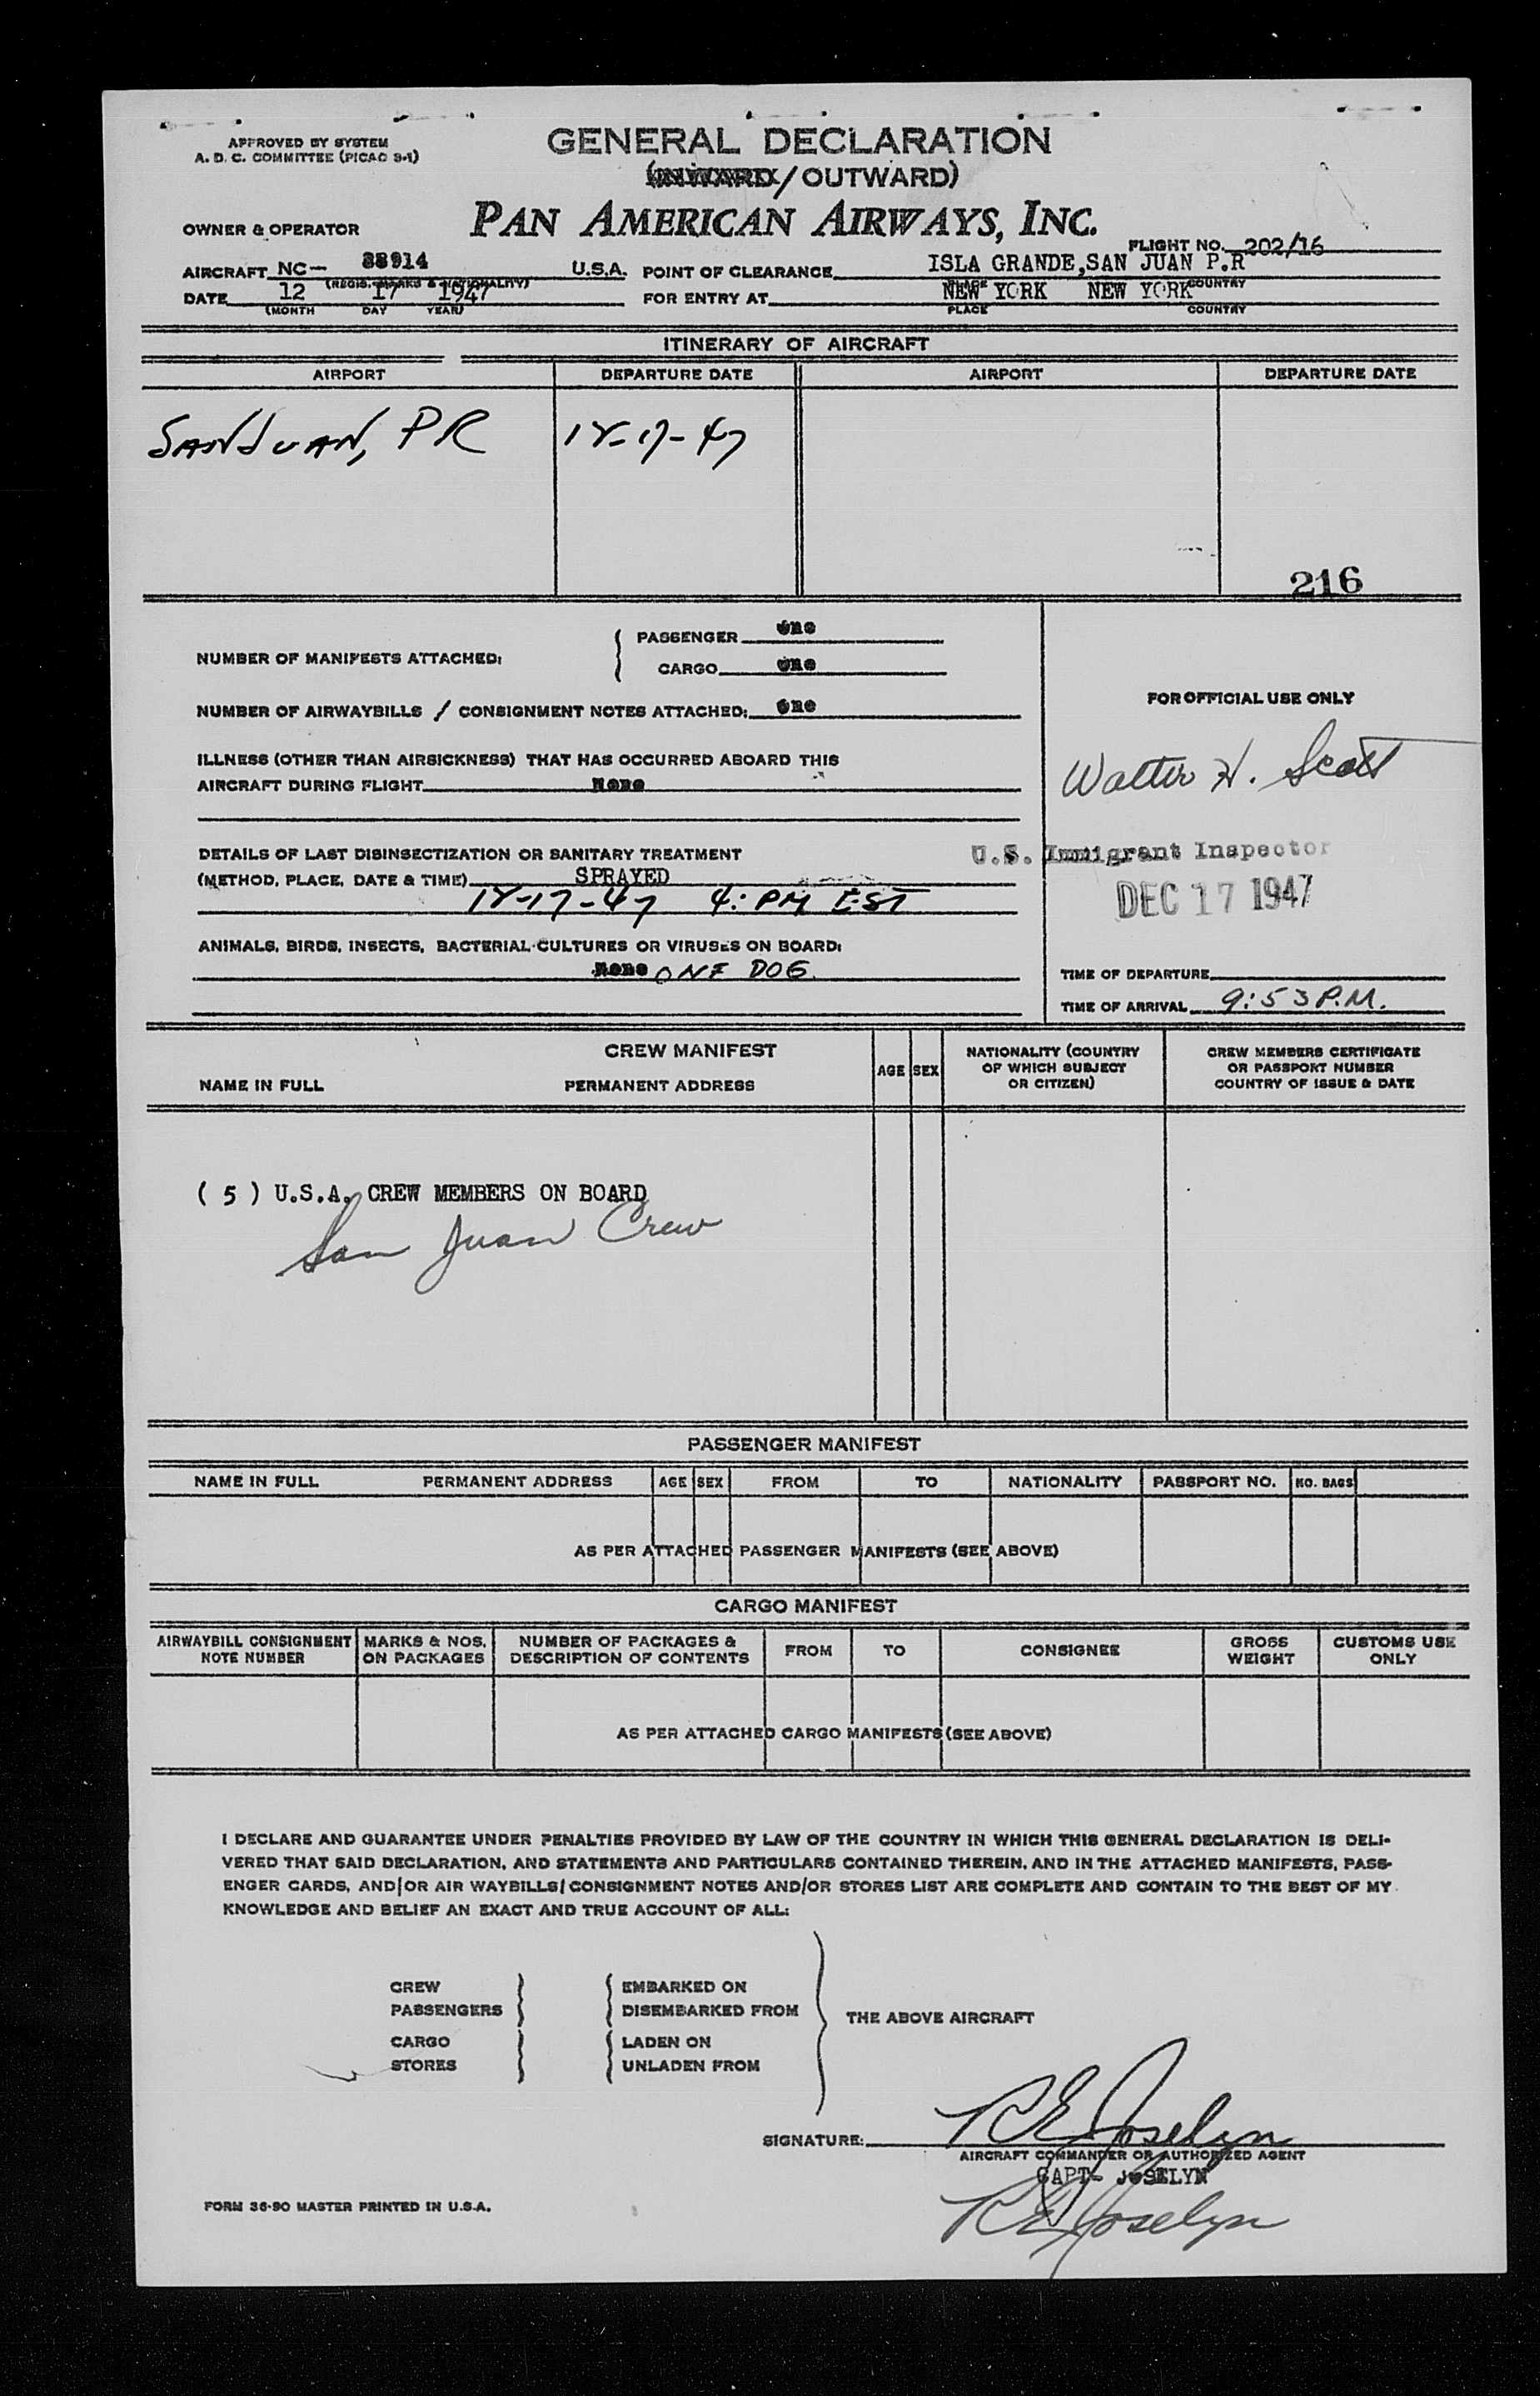 APPROVED BY SYSTEM
A. D. C. COMMITTEE (PICAO 9-1)
GENERAL DECLARATION
(INWARD/OUTWARD)
PAN AMERICAN AIRWAYS, INC.
OWNER & OPERATOR
FLIGHT NO. 202/16
AIRCRAFT NC- 88914 U.S.A. POINT OF CLEARANCE ISLA GRANDE,SAN JUAN P.R
(REGIS. MARKS & NATIONALITY) PLACE COUNTRY
DATE 12 17 1947 FOR ENTRY AT NEW YORK NEW YORK
(MONTH DAY YEAR) PLACE COUNTRY
ITINERARY OF AIRCRAFT
AIRPORT DEPARTURE DATE AIRPORT DEPARTURE DATE
SAN JUAN, PR 12-17-47
216
NUMBER OF MANIFESTS ATTACHED: PASSENGER One
CARGO One
NUMBER OF AIRWAYBILLS / CONSIGNMENT NOTES ATTACHED: One
ILLNESS (OTHER THAN AIRSICKNESS) THAT HAS OCCURRED ABOARD THIS
AIRCRAFT DURING FLIGHT None
DETAILS OF LAST DISINSECTIZATION OR SANITARY TREATMENT
(METHOD, PLACE, DATE & TIME) SPRAYED
12-17-47 4: PM EST
ANIMALS, BIRDS, INSECTS, BACTERIAL CULTURES OR VIRUSES ON BOARD:
None ONE DOG
FOR OFFICIAL USE ONLY
Walter H. Scott
U.S. Immigrant Inspector
DEC 17 1947
TIME OF DEPARTURE
TIME OF ARRIVAL 9:53 P.M.
CREW MANIFEST
NAME IN FULL PERMANENT ADDRESS AGE SEX NATIONALITY (COUNTRY OF WHICH SUBJECT OR CITIZEN) CREW MEMBERS CERTIFICATE OR PASSPORT NUMBER COUNTRY OF ISSUE & DATE
( 5 ) U.S.A. CREW MEMBERS ON BOARD
San Juan Crew
PASSENGER MANIFEST
NAME IN FULL PERMANENT ADDRESS AGE SEX FROM TO NATIONALITY PASSPORT NO. NO. BAGS
AS PER ATTACHED PASSENGER MANIFESTS (SEE ABOVE)
CARGO MANIFEST
AIRWAYBILL CONSIGNMENT NOTE NUMBER MARKS & NOS. ON PACKAGES NUMBER OF PACKAGES & DESCRIPTION OF CONTENTS FROM TO CONSIGNEE GROSS WEIGHT CUSTOMS USE ONLY
AS PER ATTACHED CARGO MANIFESTS (SEE ABOVE)
I DECLARE AND GUARANTEE UNDER PENALTIES PROVIDED BY LAW OF THE COUNTRY IN WHICH THIS GENERAL DECLARATION IS DELI-
VERED THAT SAID DECLARATION, AND STATEMENTS AND PARTICULARS CONTAINED THEREIN, AND IN THE ATTACHED MANIFESTS, PASS-
ENGER CARDS, AND/OR AIR WAYBILLS/CONSIGNMENT NOTES AND/OR STORES LIST ARE COMPLETE AND CONTAIN TO THE BEST OF MY
KNOWLEDGE AND BELIEF AN EXACT AND TRUE ACCOUNT OF ALL:
CREW EMBARKED ON
PASSENGERS DISEMBARKED FROM
THE ABOVE AIRCRAFT
CARGO LADEN ON
STORES UNLADEN FROM
SIGNATURE: R E Joselyn
AIRCRAFT COMMANDER OR AUTHORIZED AGENT
CAPT- JOSELYN
R E Joselyn
FORM 36-90 MASTER PRINTED IN U.S.A.